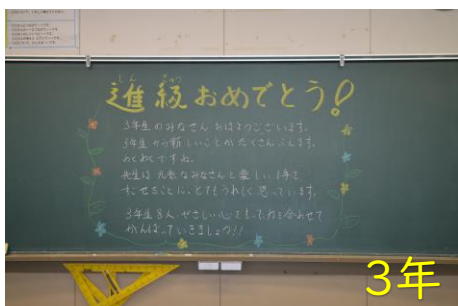 しん きゅう
進級おめでとう!
3年生のみなさん おはようございます。
3年生から新しいことがたくさんふえます。
わくわくですね。
先生は元気なみなさんと楽しい1年を
すごせることに、とてもうれしく思っています。
3年生8人、やさしい心をもって、力を合わせて
がんばっていきましょう!!
3年